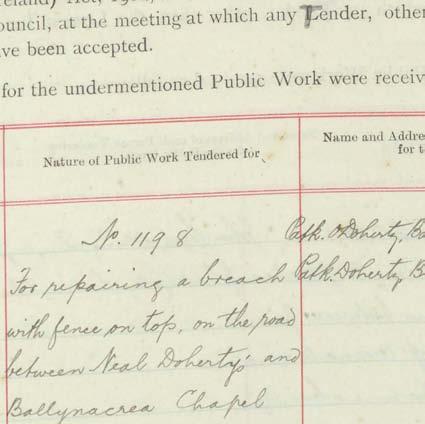 ouncil, at the meeting at which any Tender, othe
ve been accepted.
for the undermentioned Public Work were receiv
Nature of Public Work Tendered for
Name and Addre
for t
No. 1198
Patk. O'Doherty, Ba
For repairing a breach
Patk. Doherty, B
with fence on top, on the road
between Neal Doherty's and
Ballynacrea Chapel